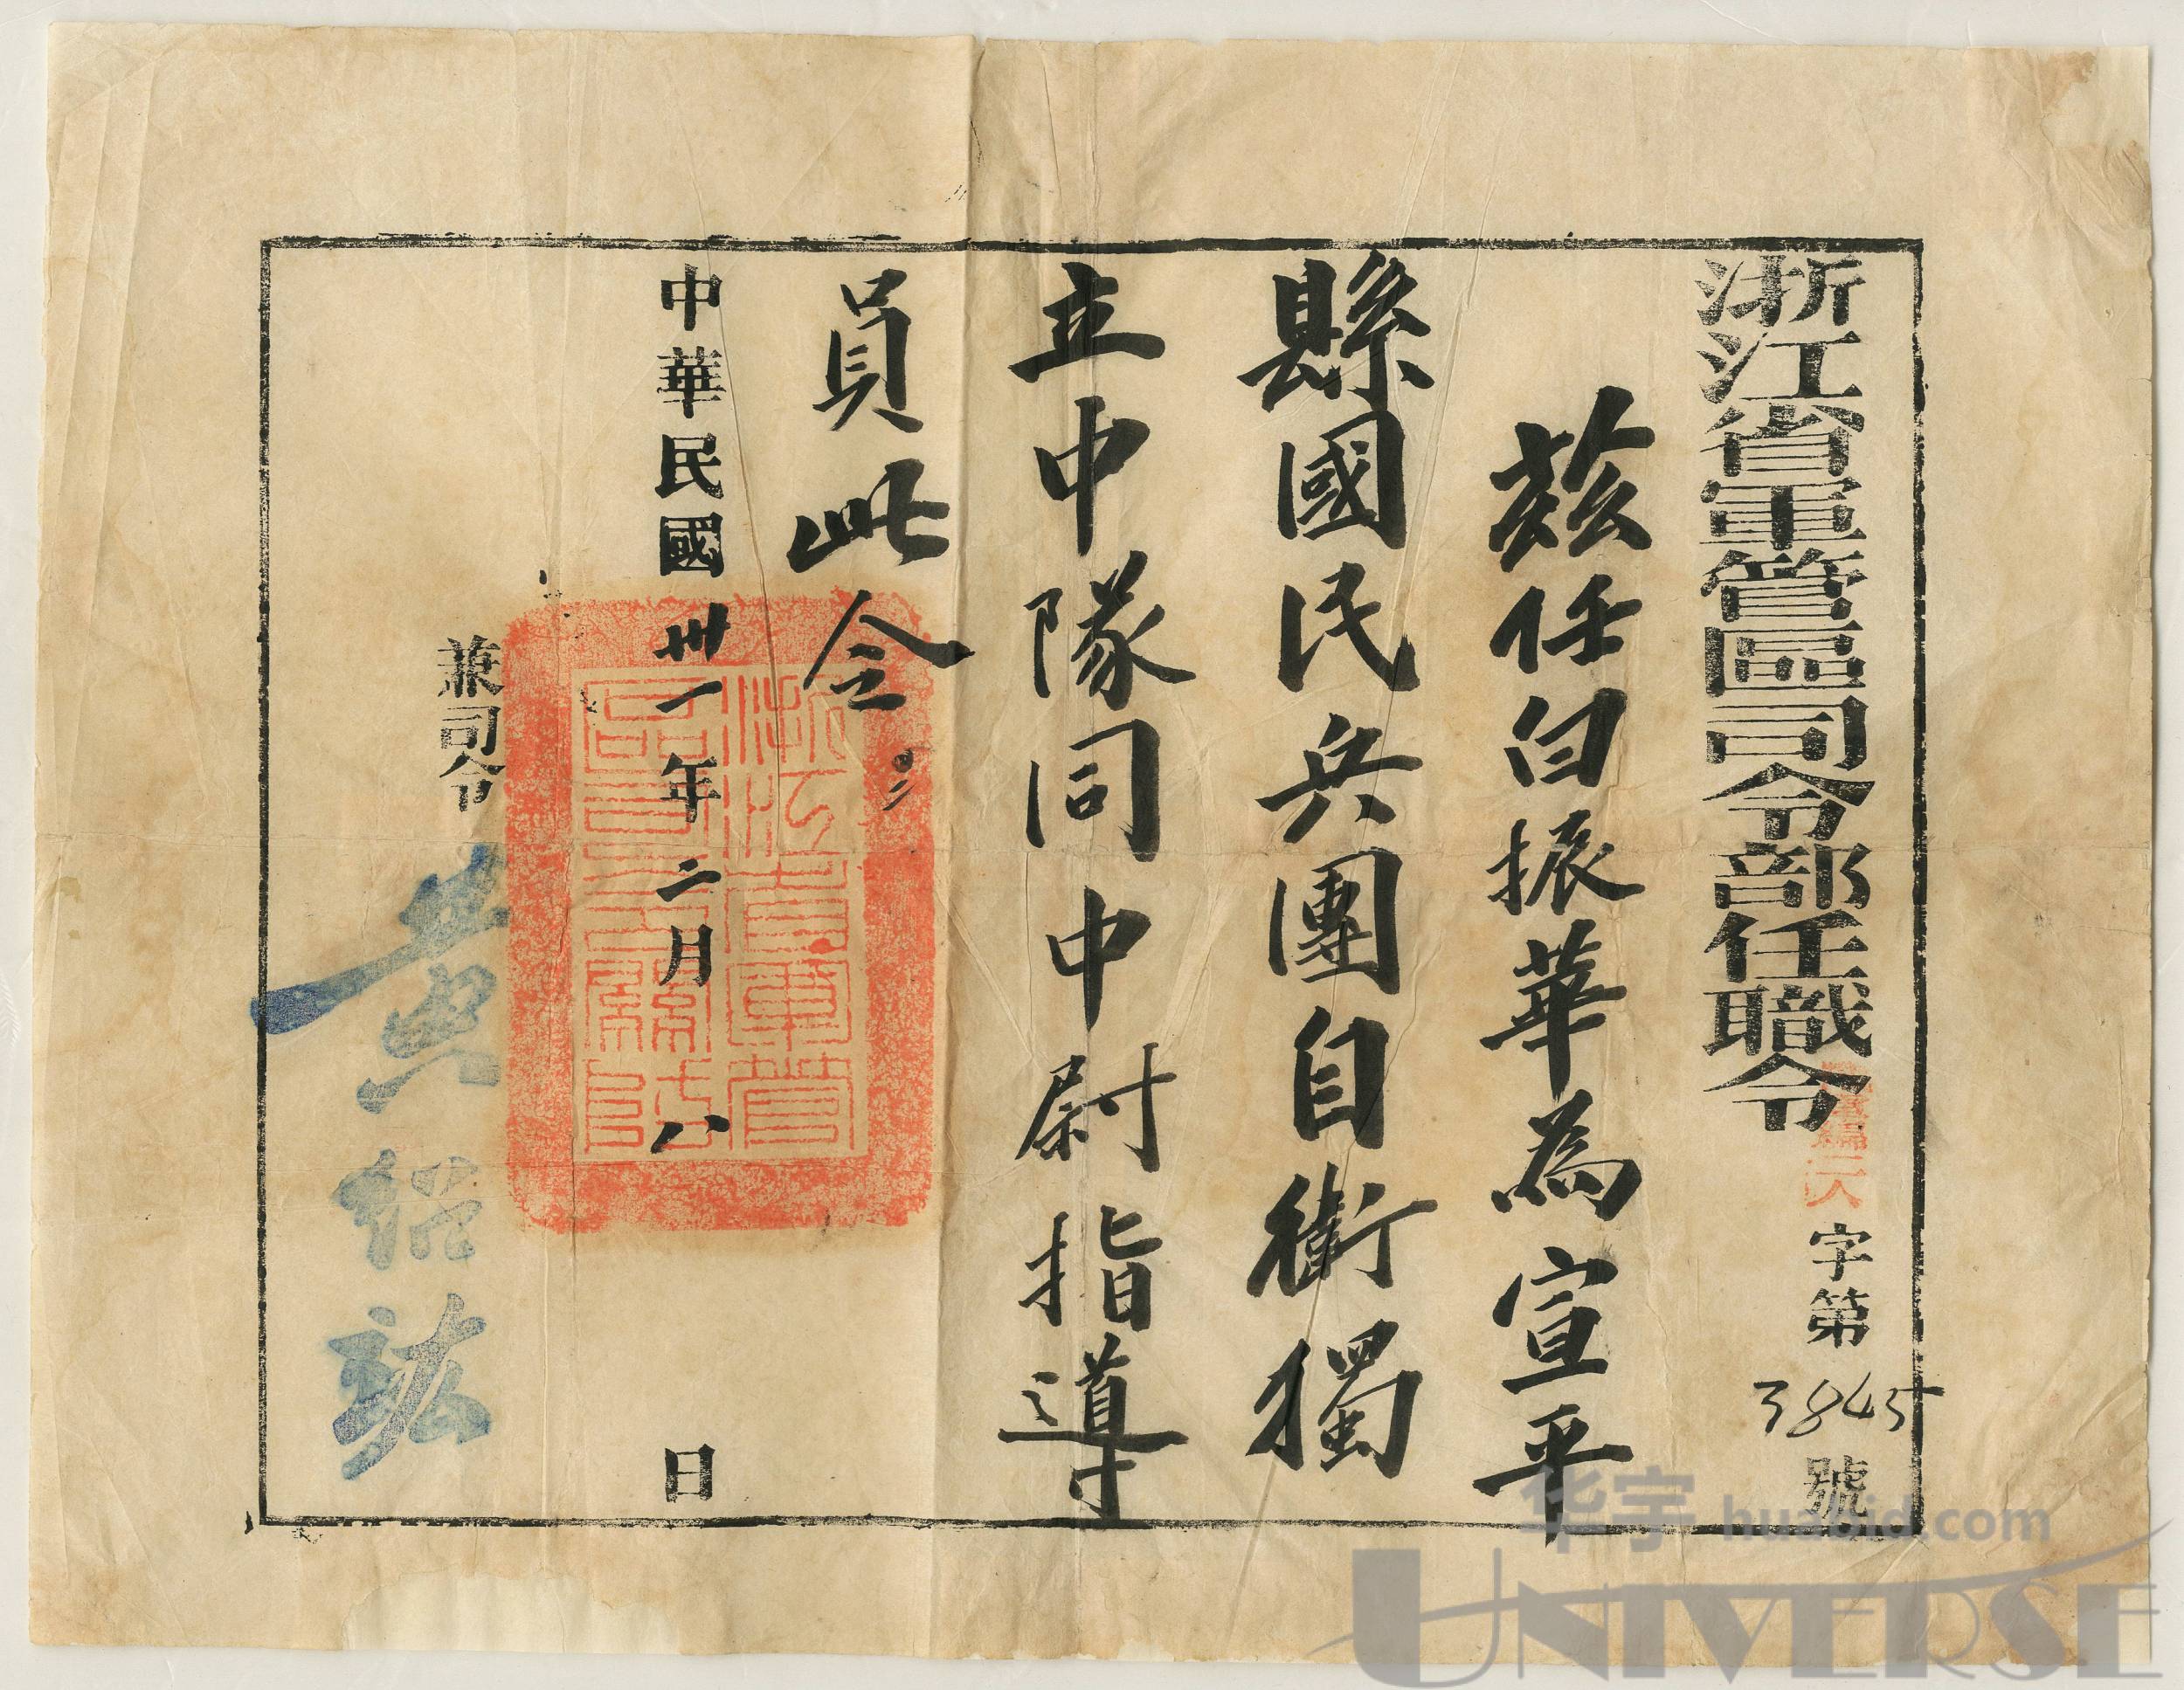 浙江省軍管區司令部任職令
字第3845號
茲任白振華為宣平
縣國民兵團自衛獨
立中隊同中尉指導
員此令
中華民國卅一年二月八日
兼司令
黃紹竑
华宇 huabid.com
UNIVERSE